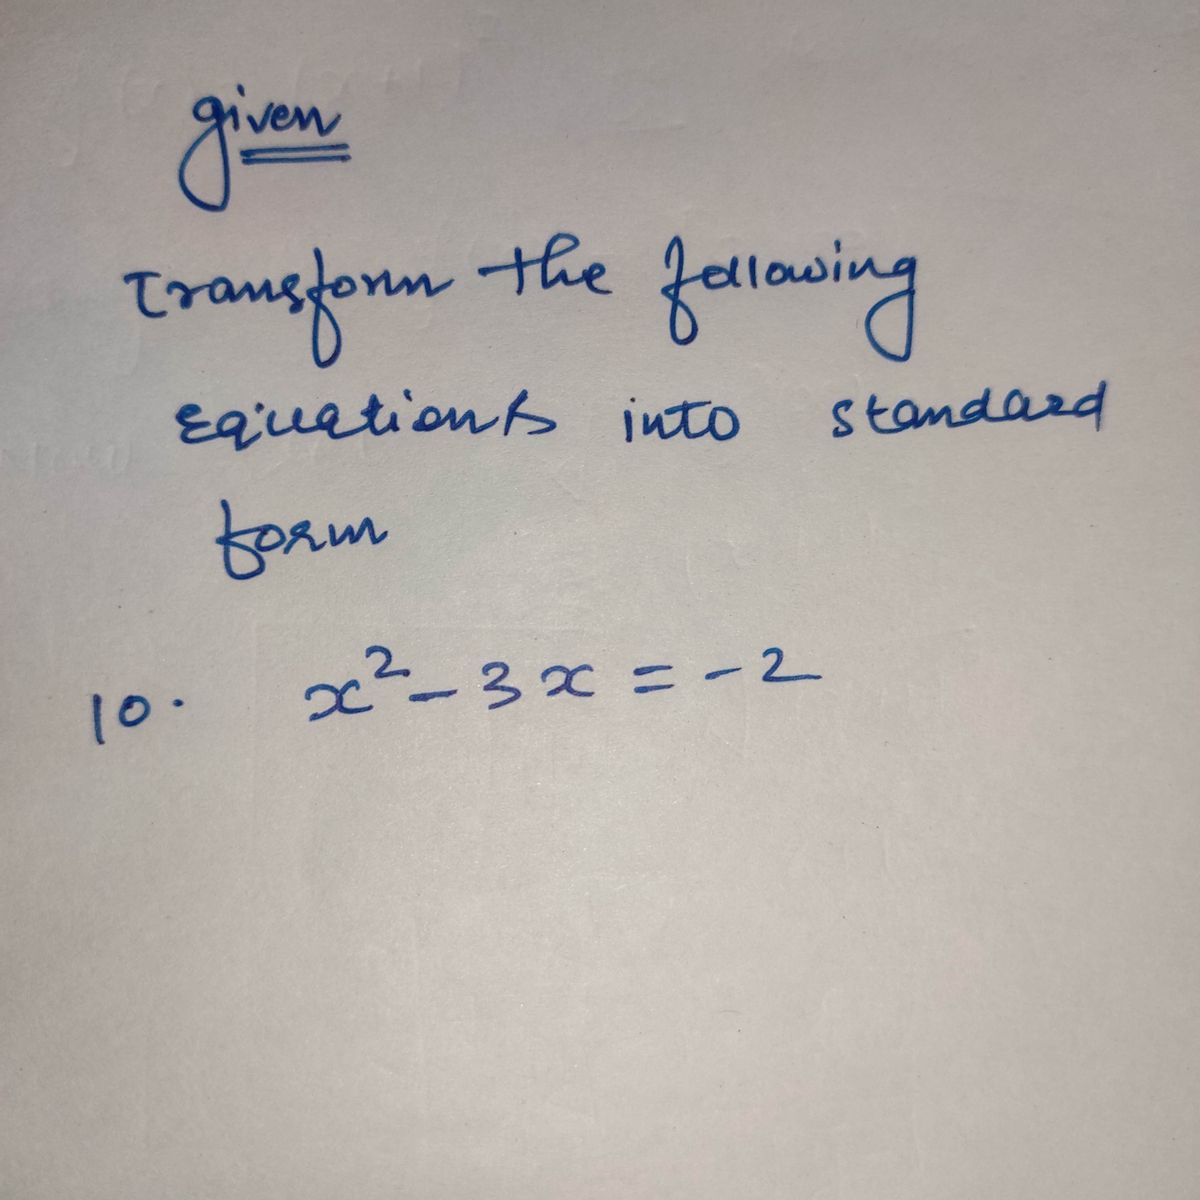 given
Transform the following
Equations into standard
form
10. x² - 3x = -2